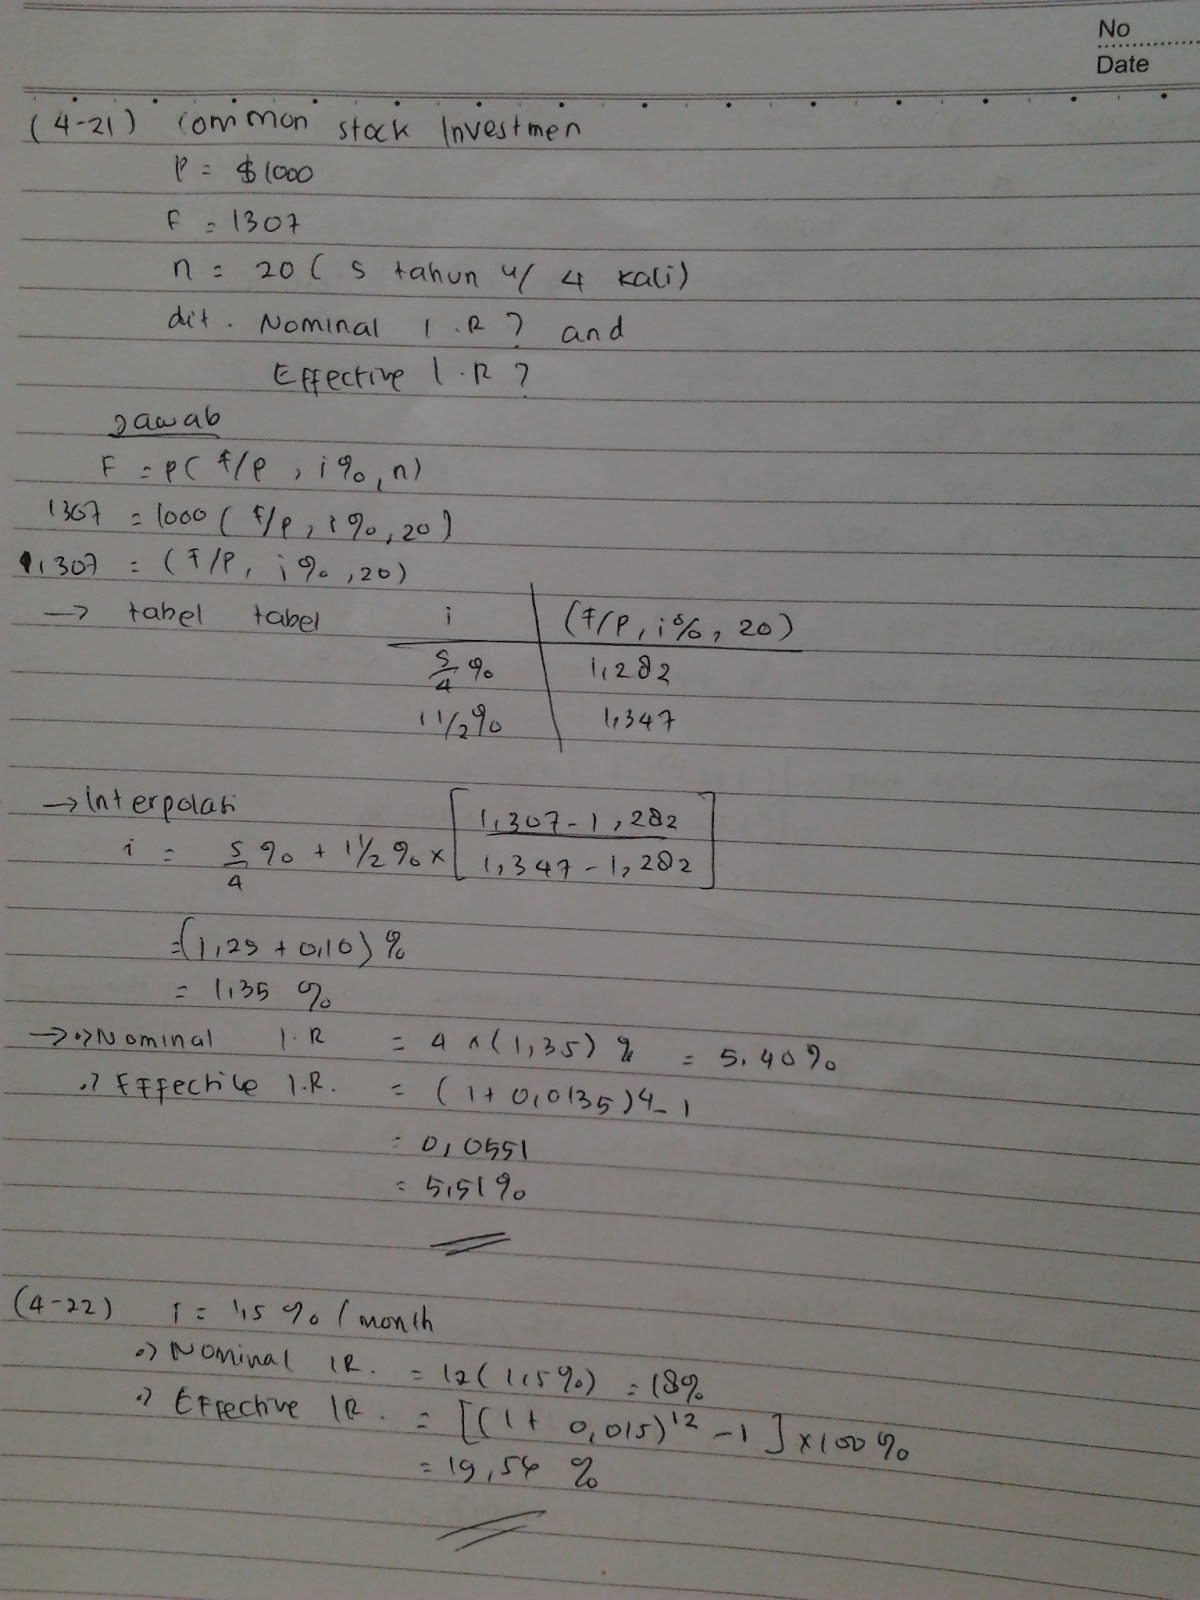 No
Date
(4-21) Common stock Investmen
P = $1000
F = 1307
n = 20 ( 5 tahun u/ 4 kali)
dit. Nominal I.R ? and
Effective I.R ?
Jawab
F = P( F/P , i%, n)
1307 = 1000 ( F/P, i%, 20)
1,307 = (F/P, i%, 20)
→ tabel tabel i (F/P, i%, 20)
5/4 % 1,282
1 1/2 % 1,347
→ Interpolasi
i = 5/4 % + 1 1/2 % x [ 1,307 - 1,282 / 1,347 - 1,282 ]
= (1,25 + 0,10) %
= 1,35 %
→ •) Nominal I.R = 4 x (1,35) % = 5.40%
•) Effective I.R. = (1 + 0,0135)4 - 1
= 0,0551
= 5,51%
(4-22) i = 1,5 % / month
•) Nominal IR. = 12 (1,5%) = 18%
•) Effective IR. = [(1 + 0,015)12 - 1] x 100%
= 19,56 %